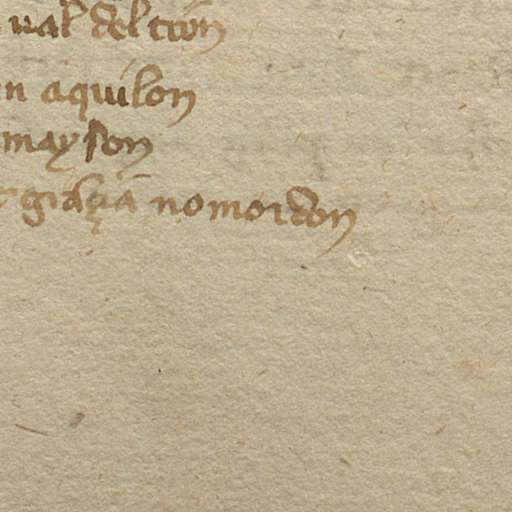 ual del cion
n aquilon
mayson
graçia nomordon